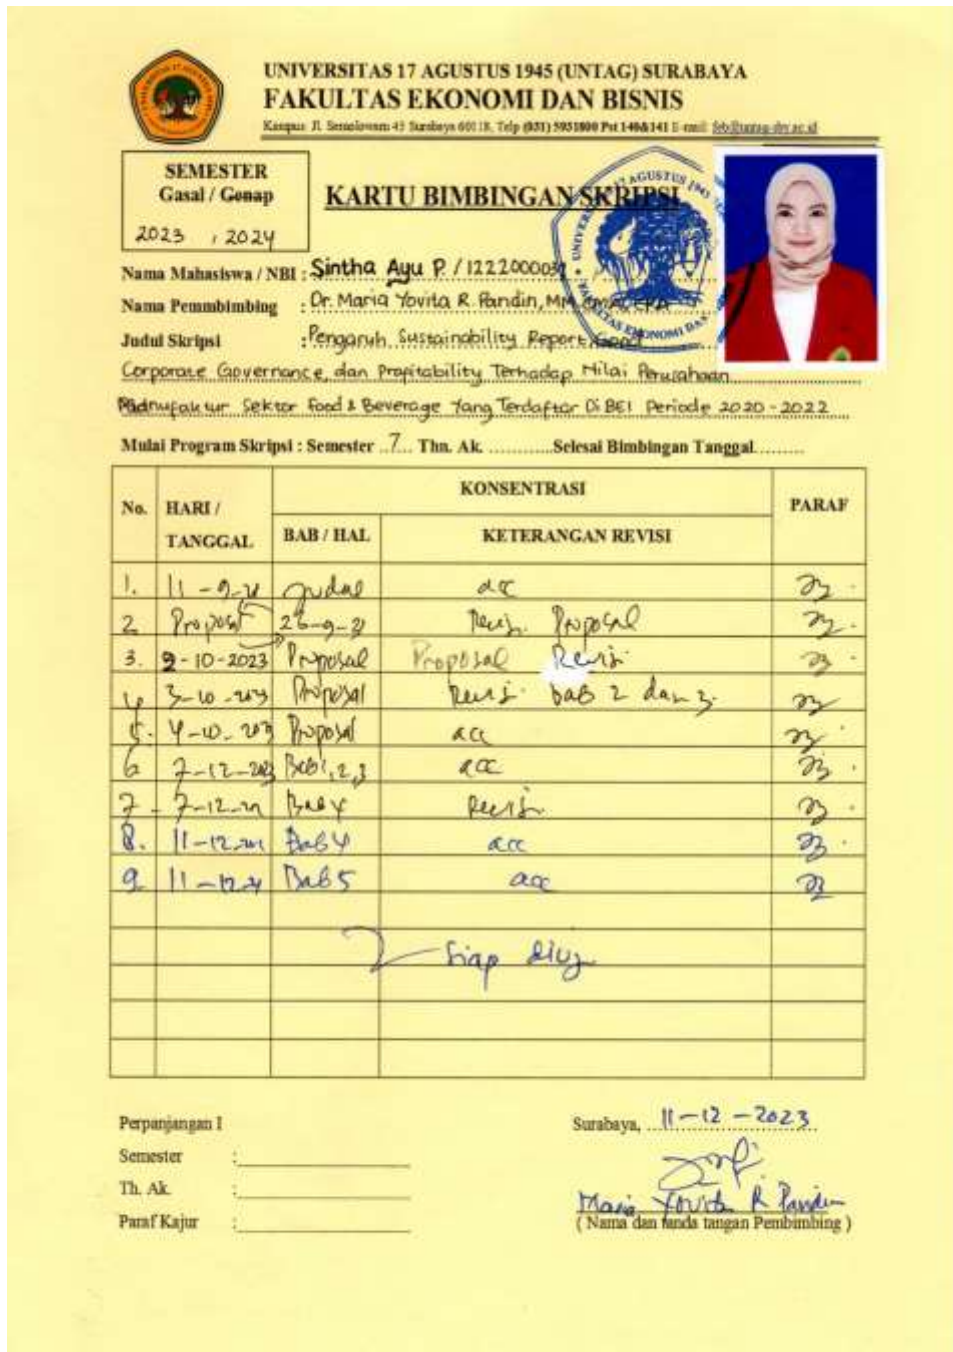 UNIVERSITAS 17 AGUSTUS 1945 (UNTAG) SURABAYA
FAKULTAS EKONOMI DAN BISNIS
Kampus Jl. Semolowaru 45 Surabaya 60118, Telp (031) 5931800 Pst 140&141 E-mail: feb@untag-sby.ac.id
SEMESTER
Gasal / Genap
2023 , 2024
KARTU BIMBINGAN SKRIPSI
Nama Mahasiswa / NBI : Sintha Ayu P. / 1222000039
Nama Pemmbimbing : Dr. Maria Yovita R. Pandin, MM
Judul Skripsi : Pengaruh Sustainability Report, Good
Corporate Governance, dan Profitability Terhadap Nilai Perusahaan
Manufaktur Sektor Food & Beverage Yang Terdaftar Di BEI Periode 2020 - 2022
Mulai Program Skripsi : Semester ..7... Thn. Ak. ............Selesai Bimbingan Tanggal.........
No. HARI / TANGGAL KONSENTRASI PARAF
BAB / HAL KETERANGAN REVISI
1. 11 - 9 - Judul acc
2 Proposal 26-9- Revisi Proposal
3. 2-10-2023 Proposal Proposal Revisi
4 3-10-2023 Proposal Revisi bab 2 dan 3
5. 4-10-2023 Proposal acc
6 7-12-2023 Bab 1, 2, 3 acc
7 7-12- Bab 4 Revisi
8. 11-12- Bab 4 acc
9 11-12- Bab 5 acc
Siap diuji
Perpanjangan I
Semester :
Th. Ak. :
Paraf Kajur :
Surabaya, 11-12-2023
Maria Yovita R Pandin
( Nama dan tanda tangan Pembimbing )